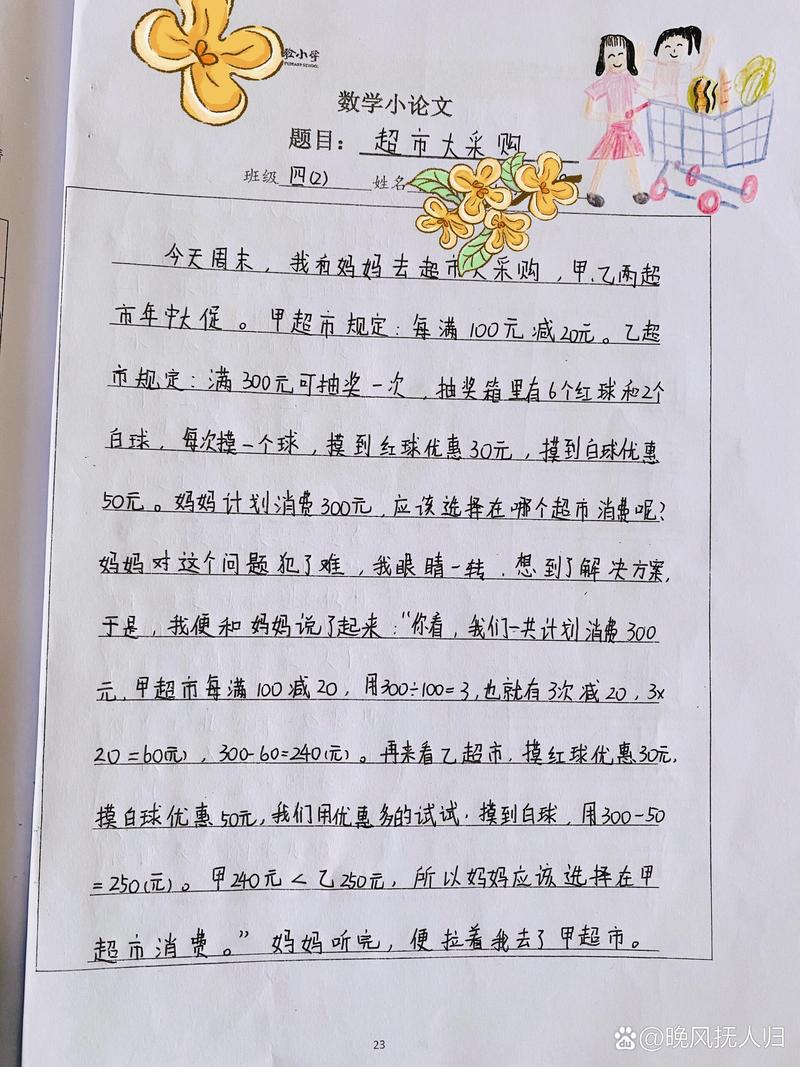 验小学
PRIMARY SCHOOL
数学小论文
题目：超市大采购
班级 四(2) 姓名
今天周末，我和妈妈去超市大采购，甲、乙两超
市年中大促。甲超市规定：每满100元减20元。乙超
市规定：满300元可抽奖一次，抽奖箱里有6个红球和2个
白球，每次摸一个球，摸到红球优惠30元，摸到白球优惠
50元。妈妈计划消费300元，应该选择在哪个超市消费呢？
妈妈对这个问题犯了难，我眼睛一转，想到了解决方案，
于是，我便和妈妈说了起来：“你看，我们一共计划消费300
元，甲超市每满100减20，用300÷100=3，也就有3次减20，3×
20=60(元)，300-60=240(元)。再来看乙超市，摸红球优惠30元，
摸白球优惠50元，我们用优惠多的试试，摸到白球，用300-50
=250(元)。甲240元<乙250元，所以妈妈应该选择在甲
超市消费。”妈妈听完，便拉着我去了甲超市。
23
Bai du @晚风抚人归